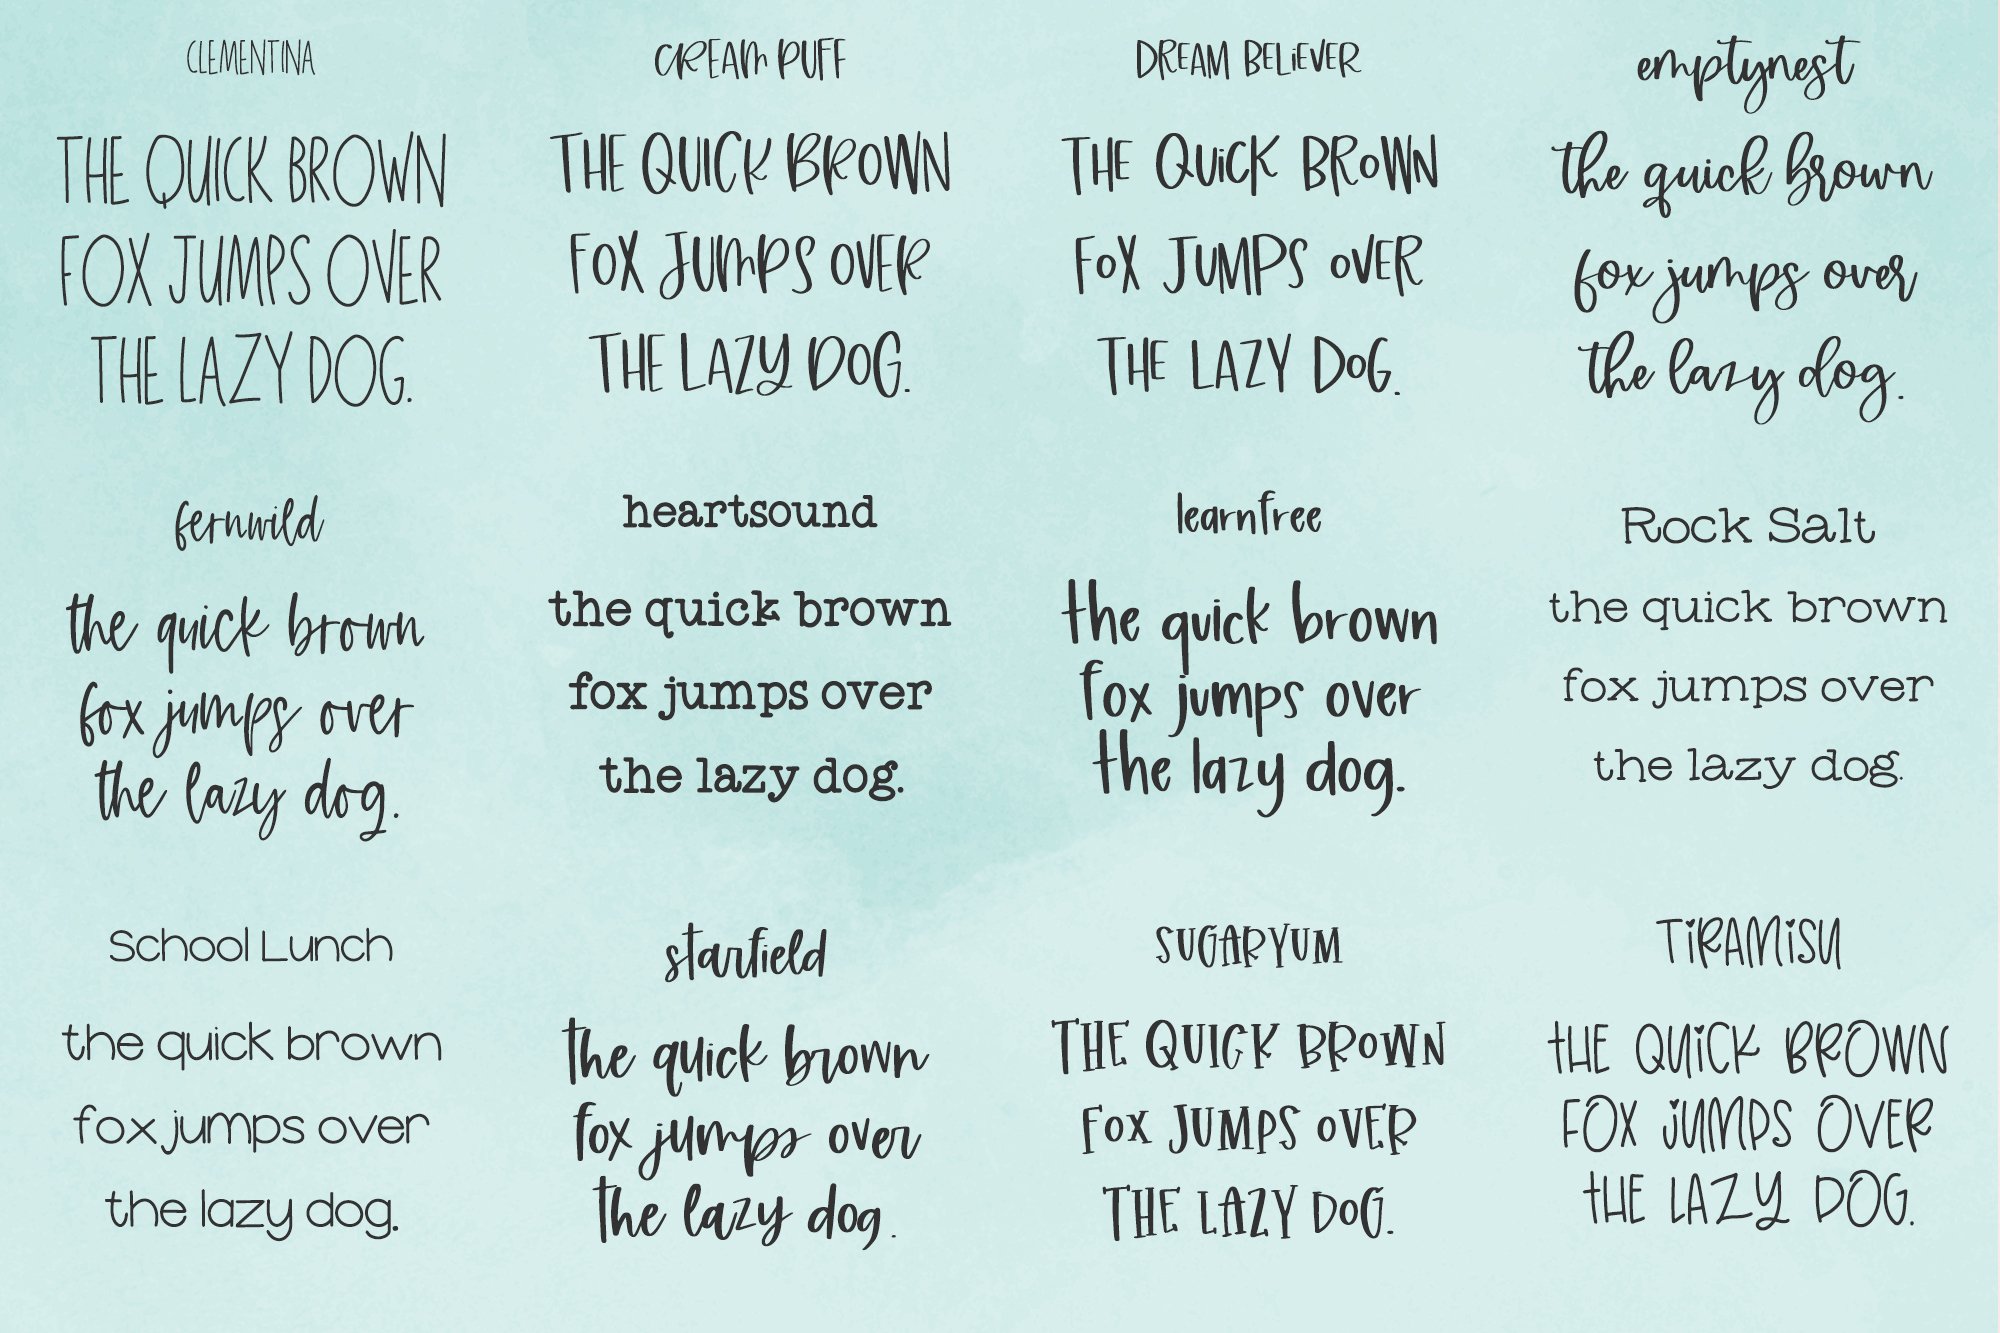 CLEMENTINA
THE QUICK BROWN
FOX JUMPS OVER
THE LAZY DOG.
CREAM PUFF
THE QUICK BROWN
FOX JUMPS OVER
THE LAZY DOG.
DREAM BELiEVER
THE QUiCK BROWN
FOX JUMPS OVER
THE LAZY DOG.
emptynest
the quick brown
fox jumps over
the lazy dog.
fernwild
the quick brown
fox jumps over
the lazy dog.
heartsound
the quick brown
fox jumps over
the lazy dog.
learnfree
the quick brown
fox jumps over
the lazy dog.
Rock Salt
the quick brown
fox jumps over
the lazy dog.
School Lunch
the quick brown
fox jumps over
the lazy dog.
starfield
the quick brown
fox jumps over
the lazy dog.
SUGARYUM
THE QUICK BROWN
FOX JUMPS OVER
THE LAZY DOG.
TiRAMiSU
tHE QUiCK BROWN
FOX JUMPS OVER
tHE LAZY DOG.